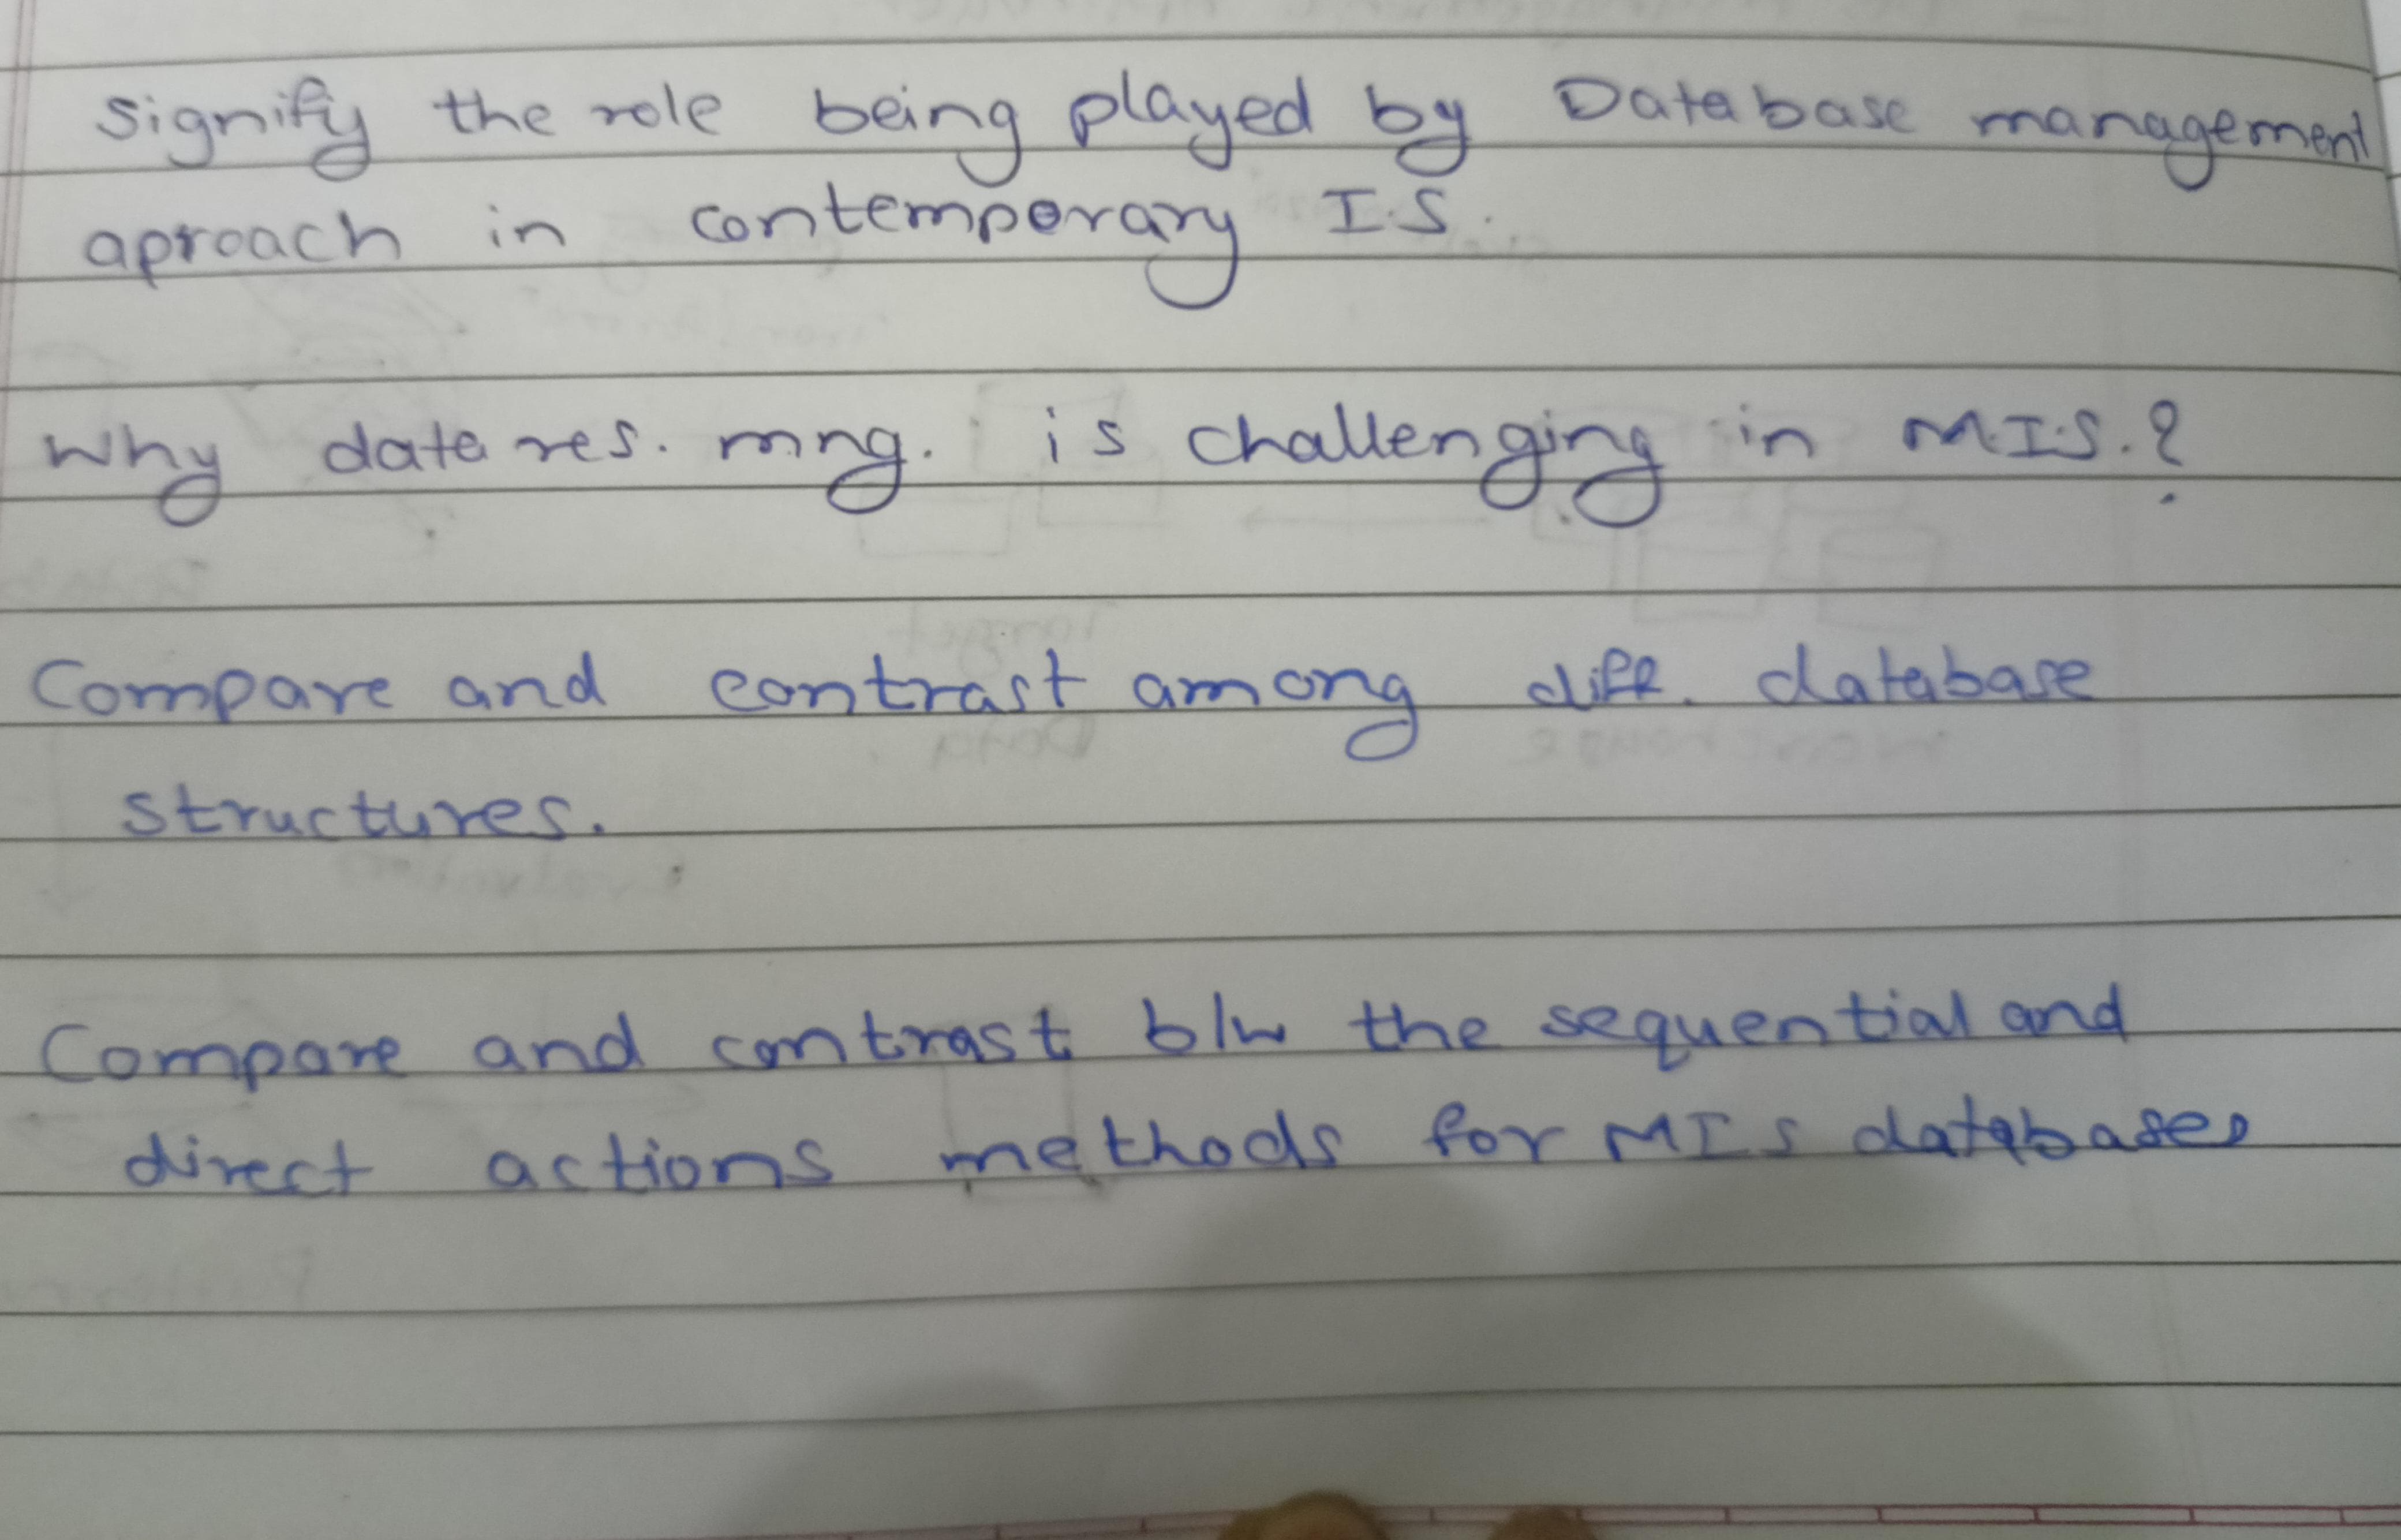 Signify the role being played by Database management
aproach in contemporary I.S.
Why data res. mng. is challenging in M.I.S.?
Compare and contrast among diff. database
structures.
Compare and contrast b/w the sequential and
direct actions methods for MIS databases